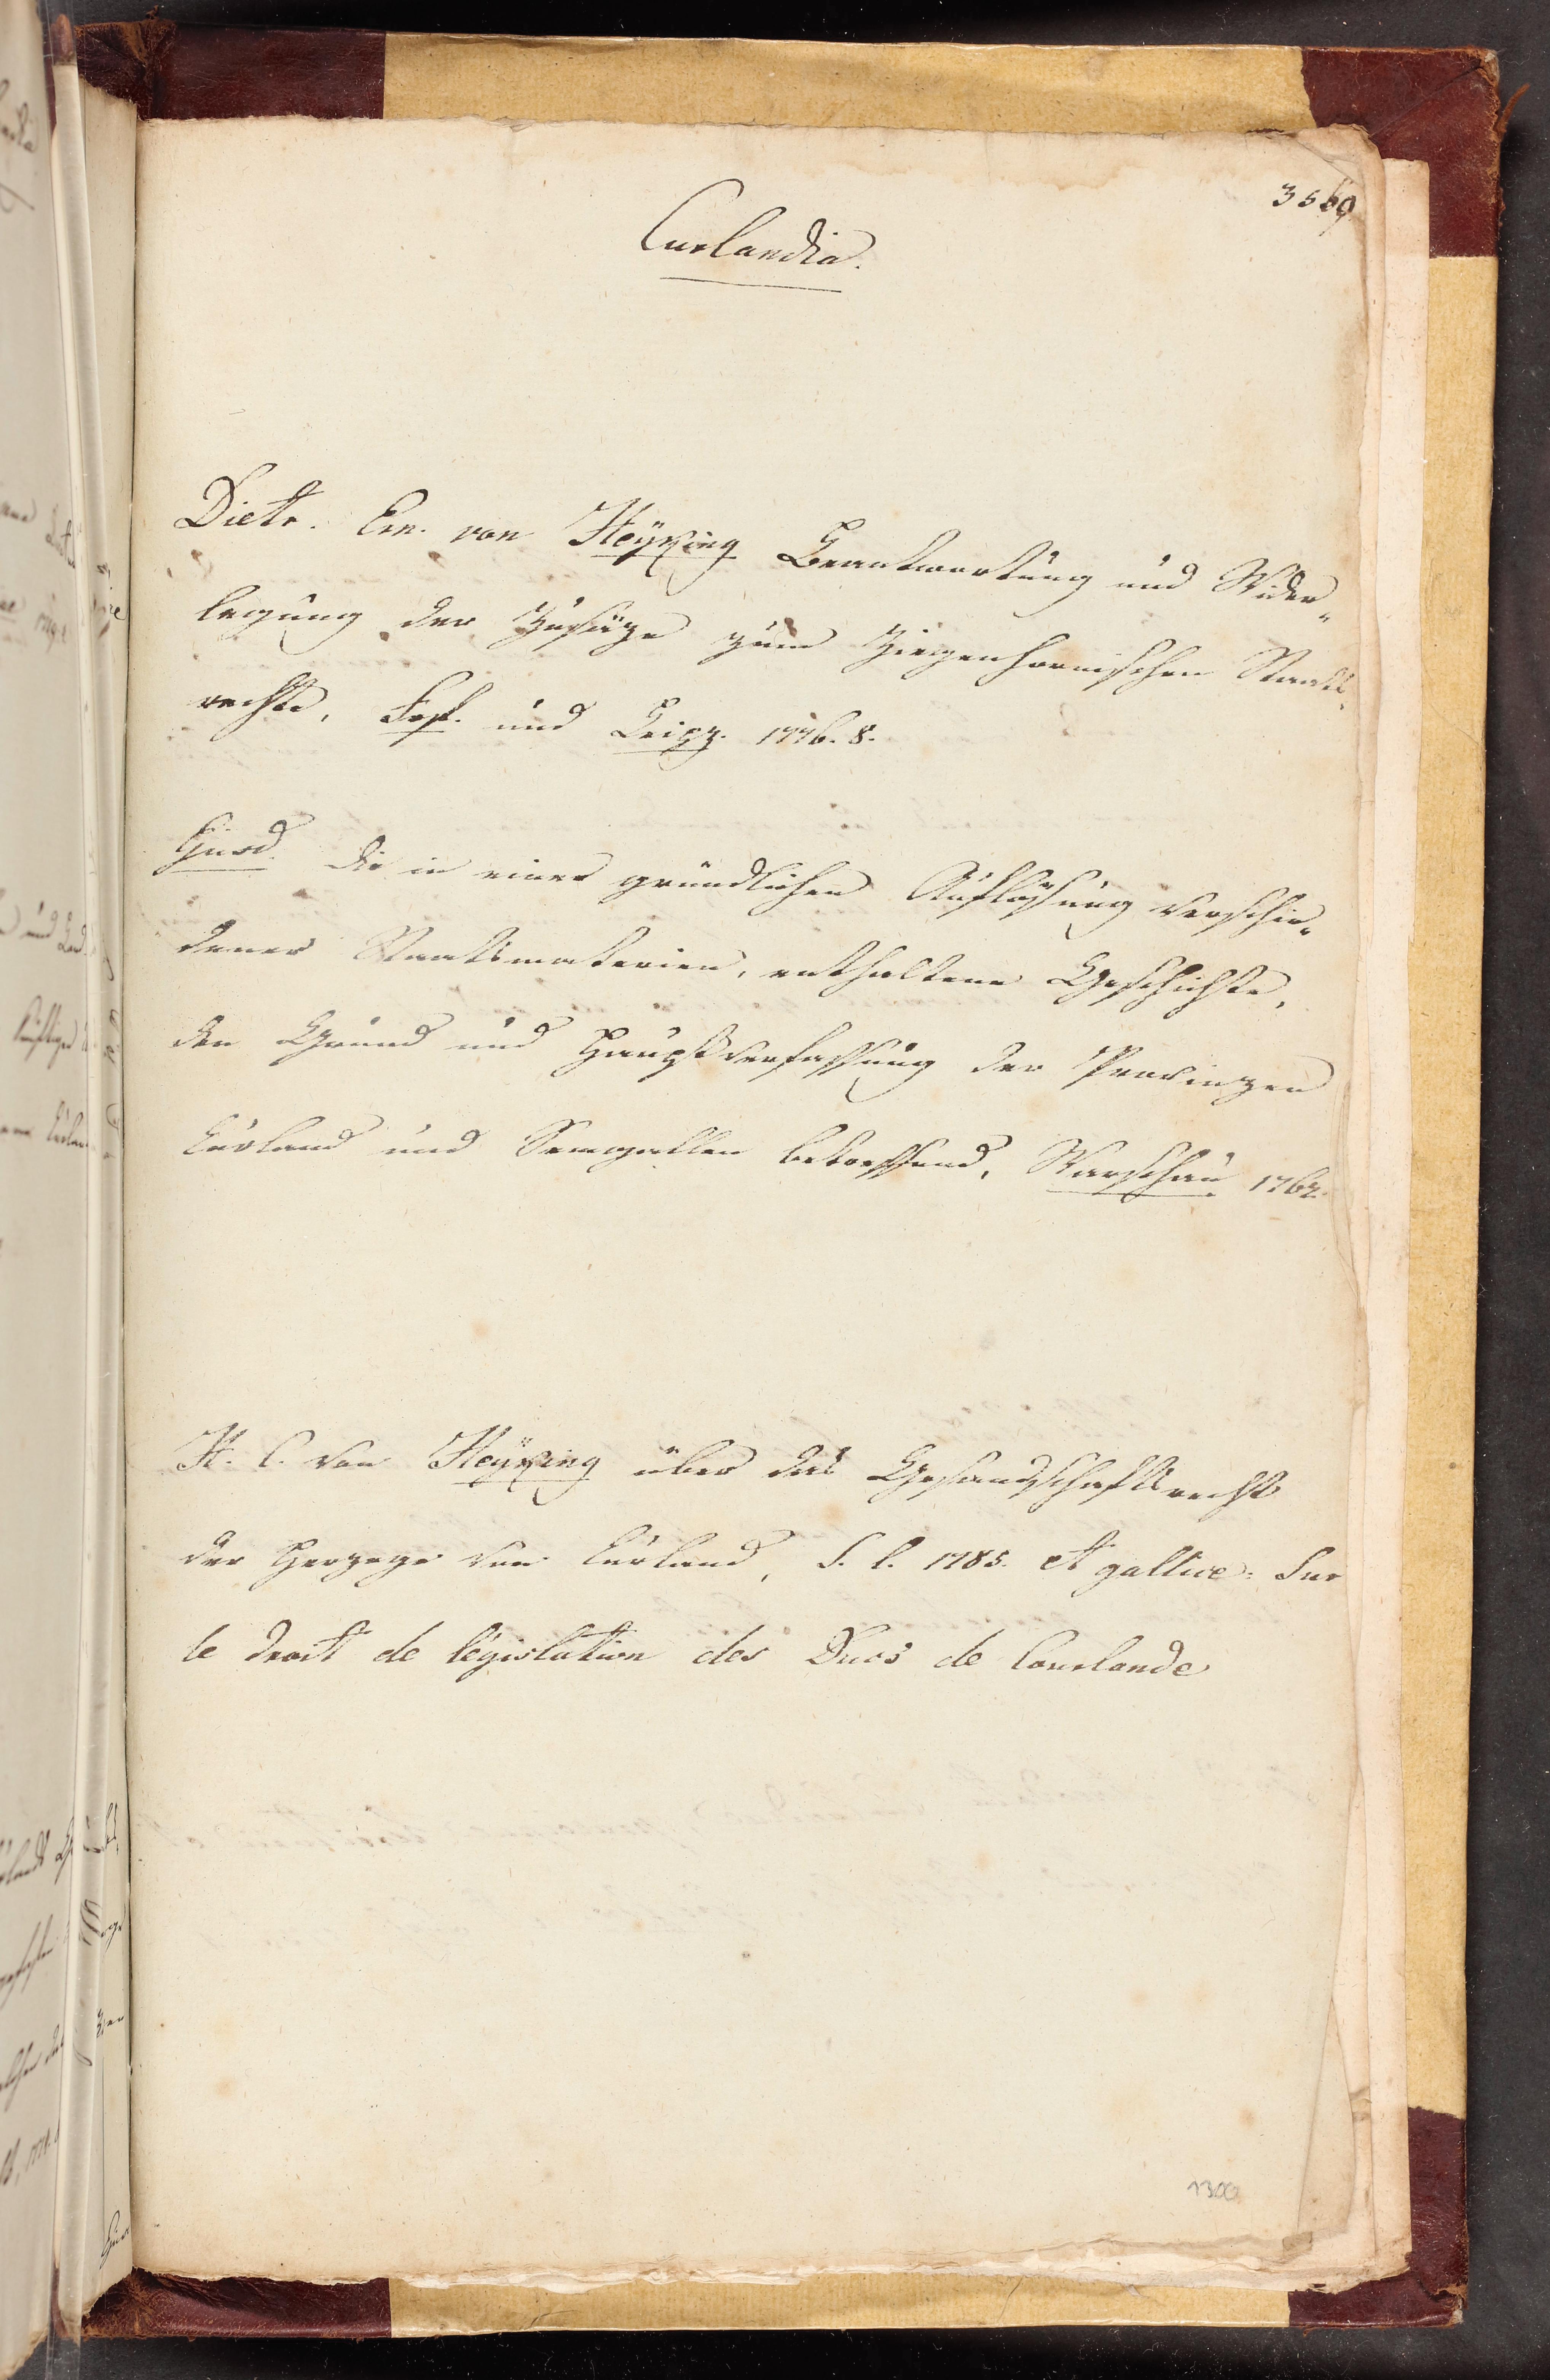 3569
Curlandia.
Dietr. Ern. von Heyking Beantwortung und Wider„
legung der Zusäze zum Ziegenhornischen Staats„
rechte. Frkf. und Leipz. 1776. 8.
Ejusd. die in einer gründlichen Auflösung verschie„
dener Staatsmaterien, enthaltene Geschichte,
den Grund und Hauptverfassung der Provinzen
Curland und Semgallen betreffend, Warschau 1762.
H. C. von Heyking über das Gesandschaftsrecht
der Herzoge von Curland, S. l. 1785. et gallice: Sur
le droit de législation des Ducs de Courlande
1300